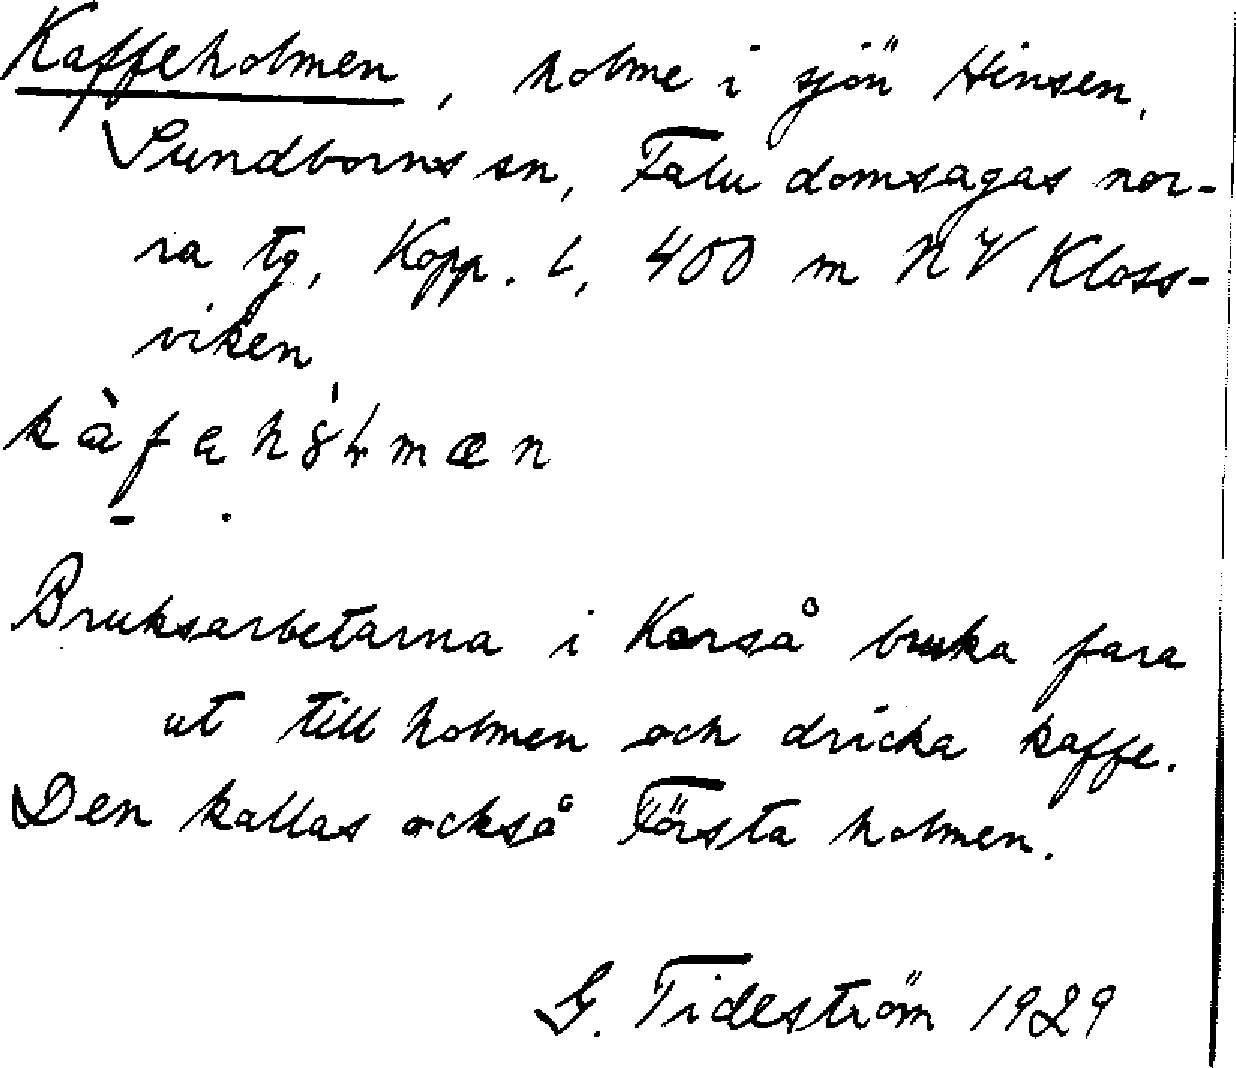 Kaffeholmen, holme i sjön Hinsen,
Sundborns sn, Falu domsagas nor-
ra tg, Kopp. l, 400 m NV Kloss-
viken
Bruksarbetarna i Korså bruka fara
ut till holmen och dricka kaffe.
Den kallas också Första holmen.
G. Tideström 1929